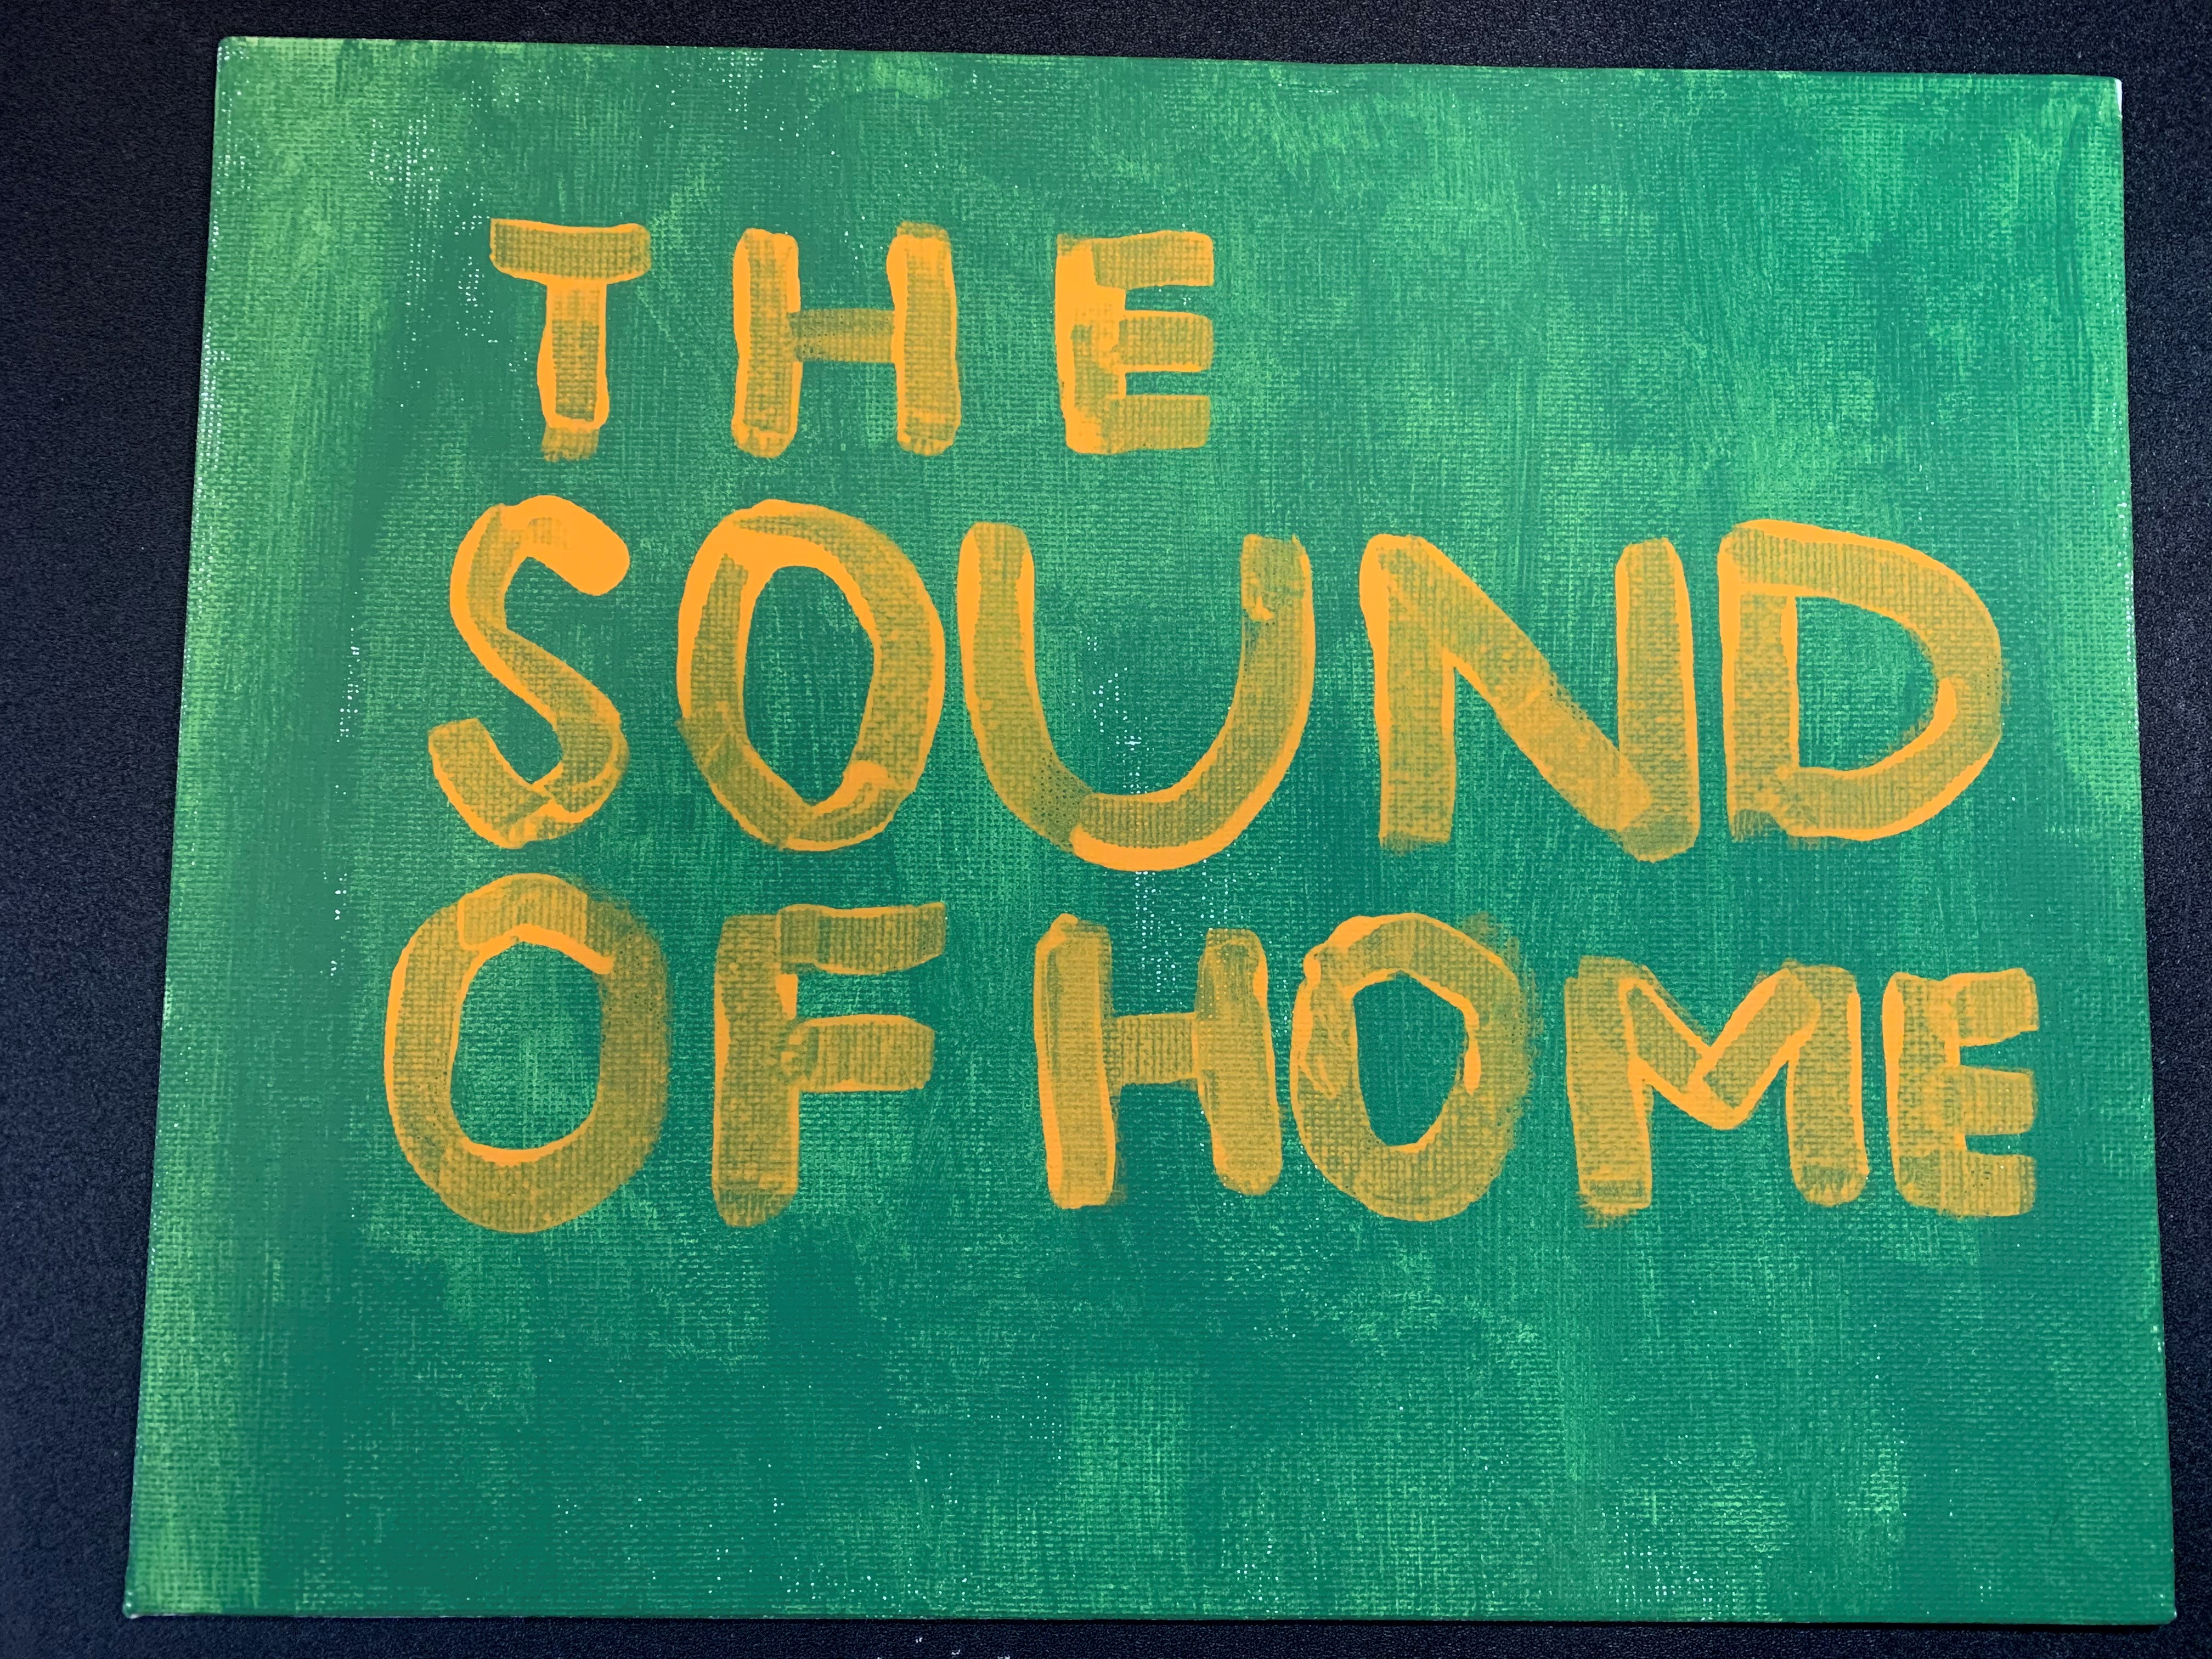 THE
SOUND
OF HOME